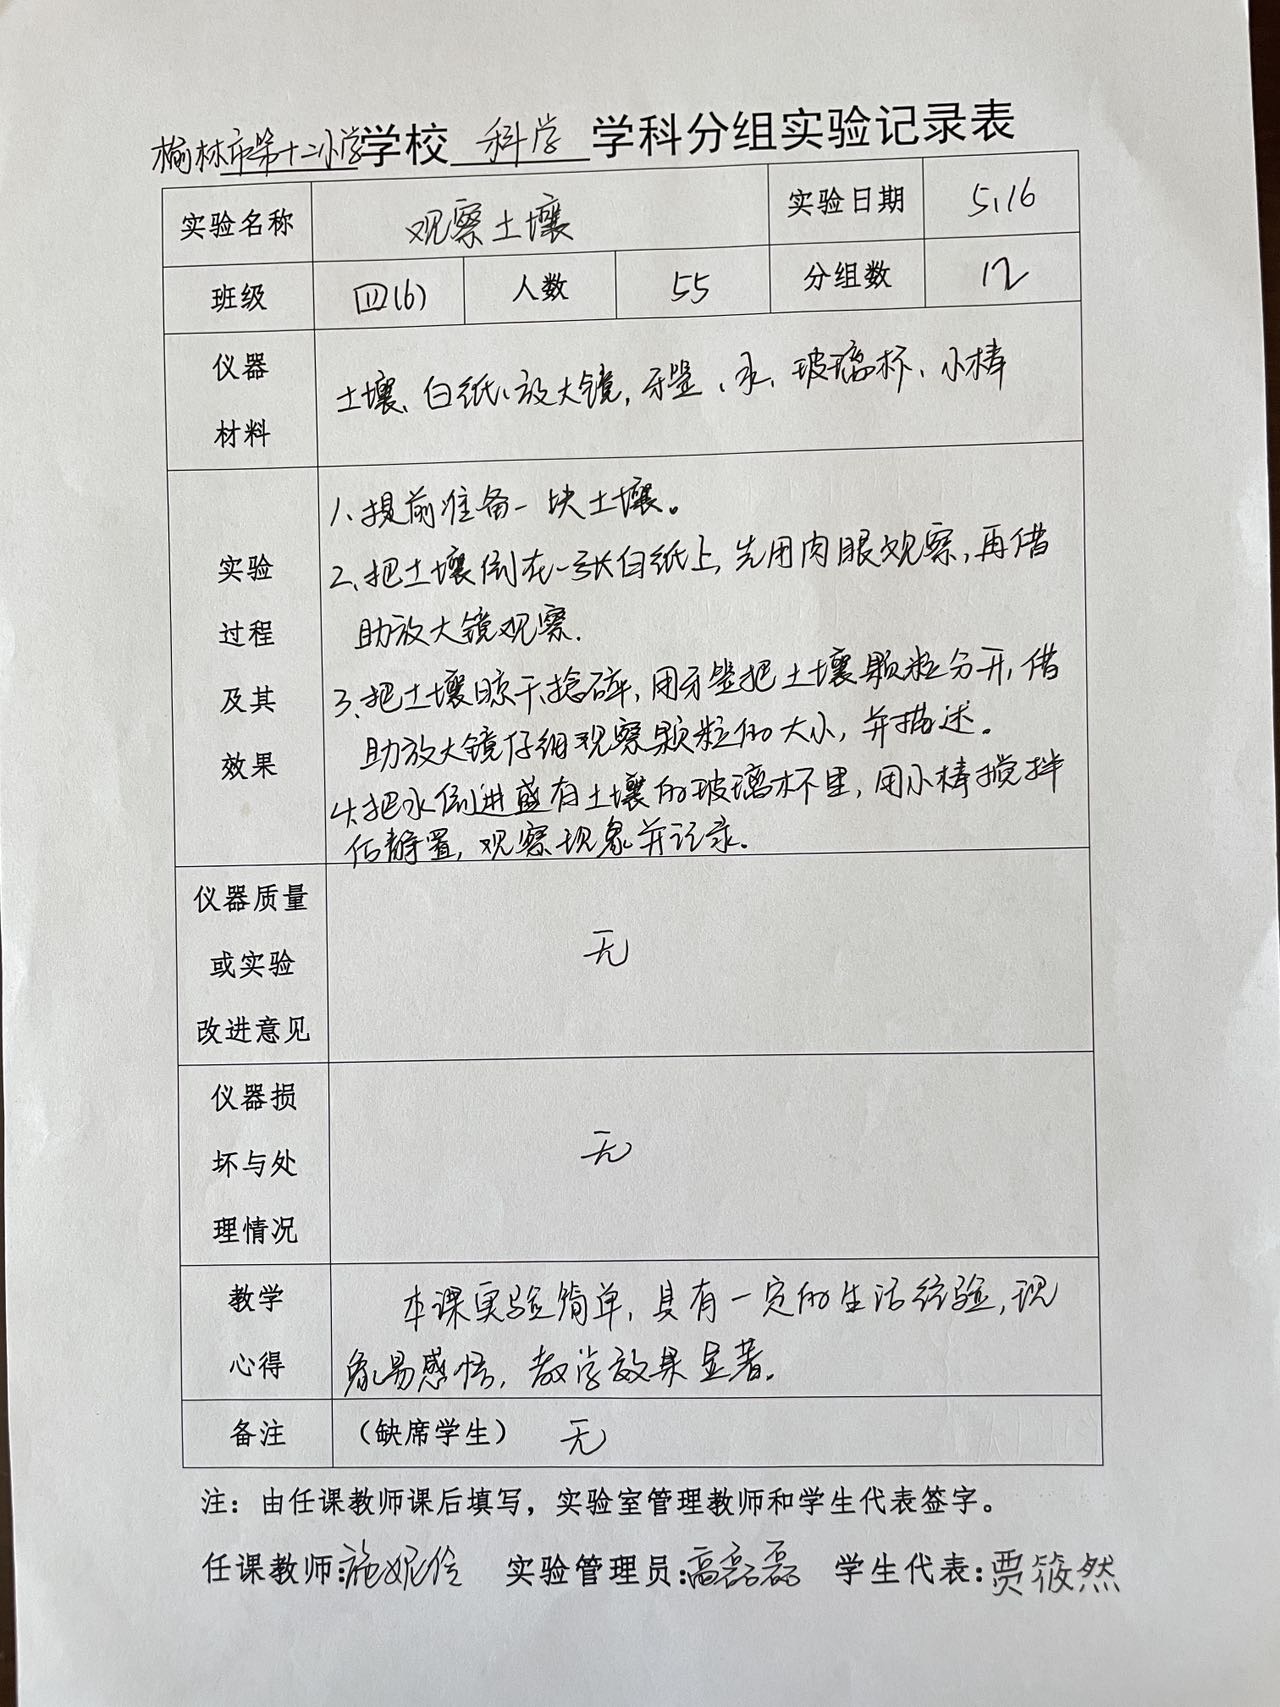 榆林市第十二小学学校 科学 学科分组实验记录表
实验名称 观察土壤 实验日期 5.16
班级 四(6) 人数 55 分组数 12
仪器
材料
土壤、白纸、放大镜,牙签、水、玻璃杯、小棒
实验
过程
及其
效果
1、提前准备一块土壤。
2、把土壤倒在一张白纸上,先用肉眼观察,再借
助放大镜观察.
3、把土壤晾干捻碎,用牙签把土壤颗粒分开,借
助放大镜仔细观察颗粒的大小,并描述。
4、把水倒进盛有土壤的玻璃杯里,用小棒搅拌
后静置,观察现象并记录.
仪器质量
或实验
改进意见
无
仪器损
坏与处
理情况
无
教学
心得
本课实验简单,具有一定的生活经验,现
象易感悟,教学效果显著.
备注 (缺席学生) 无
注:由任课教师课后填写,实验室管理教师和学生代表签字。
任课教师:施妮 实验管理员:高磊磊 学生代表:贾筱然